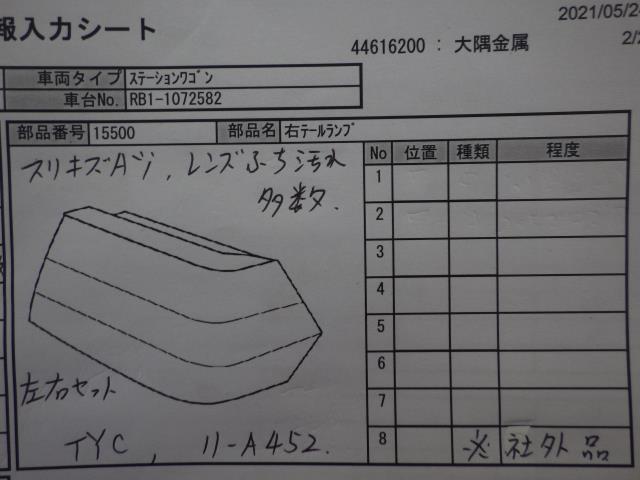 報入力シート
2021/05/2
44616200 : 大隅金属
2/2
車両タイプ ステーションワゴン
車台No. RB1-1072582
部品番号 15500 部品名 右テールランプ
スリキズAツ, レンズふち汚れ
多数.
No 位置 種類 程度
1
2
3
4
5
6
7
8 ※ 社外品
左右セット
TYC, 11-A452.